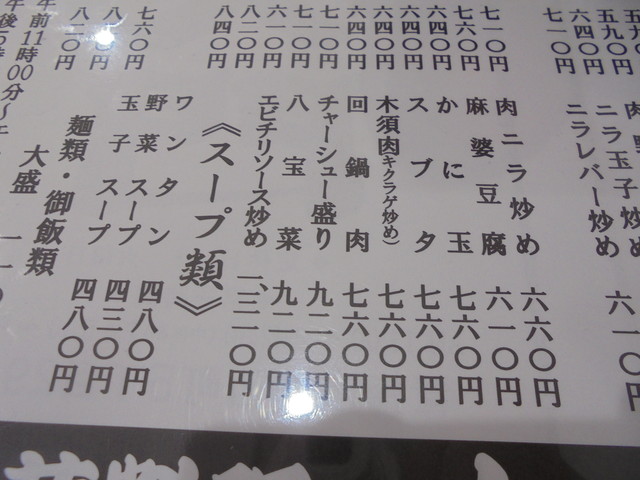 五九〇円
六四〇円
七一〇円
七一〇円
七六〇円
六四〇円
六四〇円
六四〇円
六四〇円
七一〇円
七一〇円
六一〇円
八四〇円
八四〇円
七六〇円
八一〇円
八二〇円
午前11時00分～
午後5時
ニラ玉子炒め
ニラレバー炒め 六一〇円
肉ニラ炒め 六六〇円
麻婆豆腐 六一〇円
かに玉 七六〇円
スブタ 七六〇円
木須肉(キクラゲ炒め) 七六〇円
回鍋肉 七六〇円
チャーシュー盛り 九二〇円
八宝菜 九二〇円
エビチリソース炒め 一、三一〇円
《スープ類》
ワンタン 四八〇円
野菜スープ 四三〇円
玉子スープ 四八〇円
麺類・御飯類
大盛 一一〇